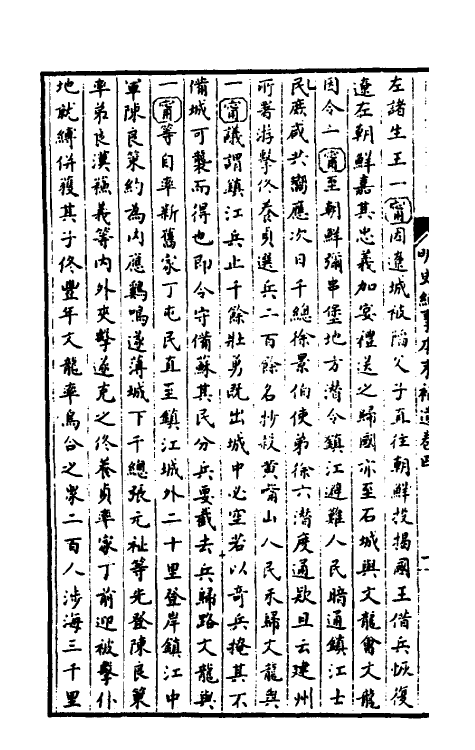 明史紀事本末補遺卷四
左諸生王一甯因遼城被陷父子直往朝鮮投揭國王借兵恢復
遼左朝鮮嘉其忠義加宴禮送之歸國亦至石城與文龍會文龍
因令一甯至朝鮮彌串堡地方潛令鎮江避難人民暗通鎮江士
民庶咸共響應次日千總徐景伯使弟徐六潛度通款且云建州
所署游擊佟養貞選兵二百餘名抄殺黃嘴山人民未歸文龍與
一甯議謂鎮江兵止千餘壯勇既出城中必空若以奇兵掩其不
備城可襲而得也即令守備蘇其民分兵要截去兵歸路文龍與
一甯等自率新舊家丁屯民直至鎮江城外二十里登岸鎮江中
軍陳良策約為內應鷄鳴遂薄城下千總張元祉等先登陳良策
率弟良漢蘇義等內外夾擊遂克之佟養貞率家丁前迎被擊仆
地就縛併獲其子佟豐年文龍率烏合之衆二百人涉海三千里